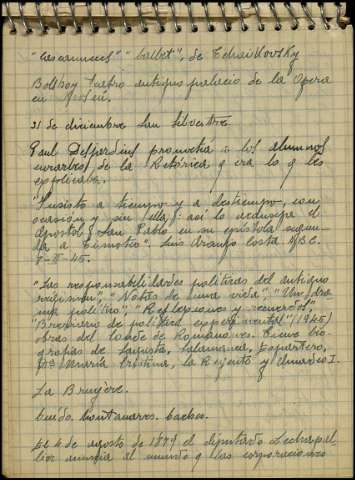 "Cascanueces" "ballet", de Tchaikovsky
Bolshoy Teatro antiguo palacio de la Opera
en
31 de diciembre San Silvestre
Paul Desjardins promovía a los alumnos
de la Retórica y era lo q les
explicaba.
"Insisto a tiempo y a destiempo, con
ocasión y sin ella; así lo aconseja el
apostol San Pablo en su epístola segun-
da a Timoteo". Luis Araujo Costa A.B.C.
8-II-45.
"Las responsabilidades políticas del antiguo
régimen", "Notas de una vida", "Un dra-
ma político", "Reflexiones y recuerdos"
"Breviario de política experimental" (1945)
obras del Conde de Romanones. Tiene bio-
grafías de Sagasta, Salamanca, Espartero,
Dª María Cristina, la Regente y Amadeo I.
La Bruyère.
El 4 de agosto de 1879 el diputado
anuncia al mundo q las corporaciones